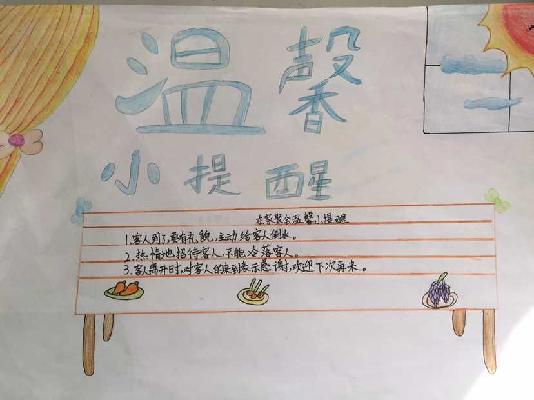 温馨
小提醒
去聚会温馨小提醒
1.客人到了,要有礼貌,主动给客人倒水。
2.热情地招待客人,不能冷落客人。
3.客人离开时,对客人的来到表示感谢,欢迎下次再来。